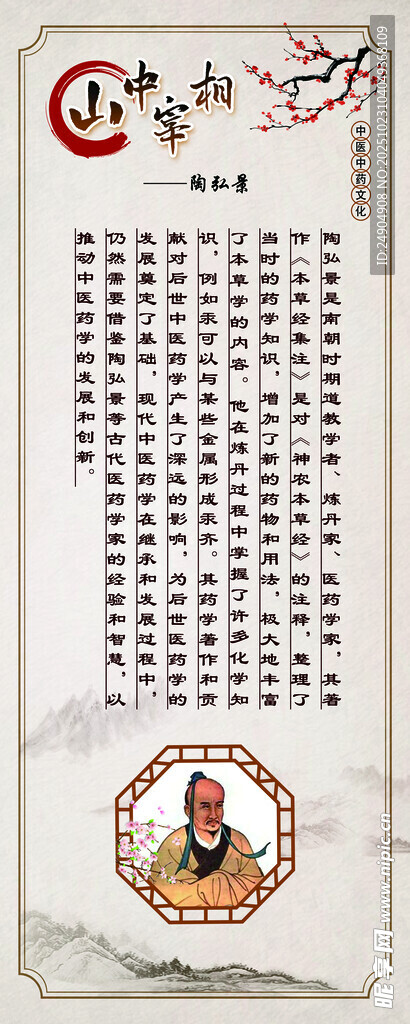 山中宰相
——陶弘景
中医中药文化
陶弘景是南朝时期道教学者、炼丹家、医药学家，其著
作《本草经集注》是对《神农本草经》的注释，整理了
当时的药学知识，增加了新的药物和用法，极大地丰富
了本草学的内容。他在炼丹过程中掌握了许多化学知
识，例如汞可以与某些金属形成汞齐。其药学著作和贡
献对后世中医药学产生了深远的影响，为后世医药学的
发展奠定了基础，现代中医药学在继承和发展过程中，
仍然需要借鉴陶弘景等古代医药学家的经验和智慧，以
推动中医药学的发展和创新。
ID:24904908 NO:20251023104049368109
昵享网 www.nipic.cn